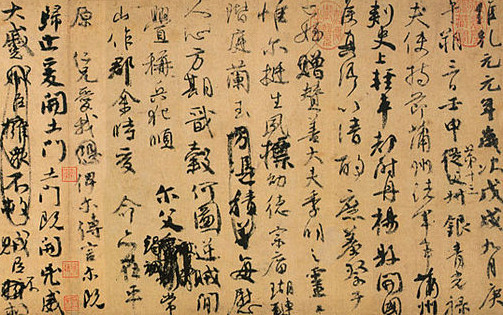 維乾元元年歲次戊戌九月庚
午朔三日壬申第十三從父銀青光祿
夫使持節蒲州諸軍事蒲州
刺史上輕車都尉丹楊縣開國
侯真卿以清酌庶羞祭于
亡姪贈贊善大夫季明之靈
惟爾挺生夙標幼德宗廟瑚璉
階庭蘭玉方憑積善每慰
人心方期戩穀何圖逆賊間
釁稱兵犯順爾父竭誠常
山作郡余時受命亦在平
原仁兄愛我俾爾傳言爾既
歸止爰開土門土門既開凶威
大蹙賊臣擁衆不救